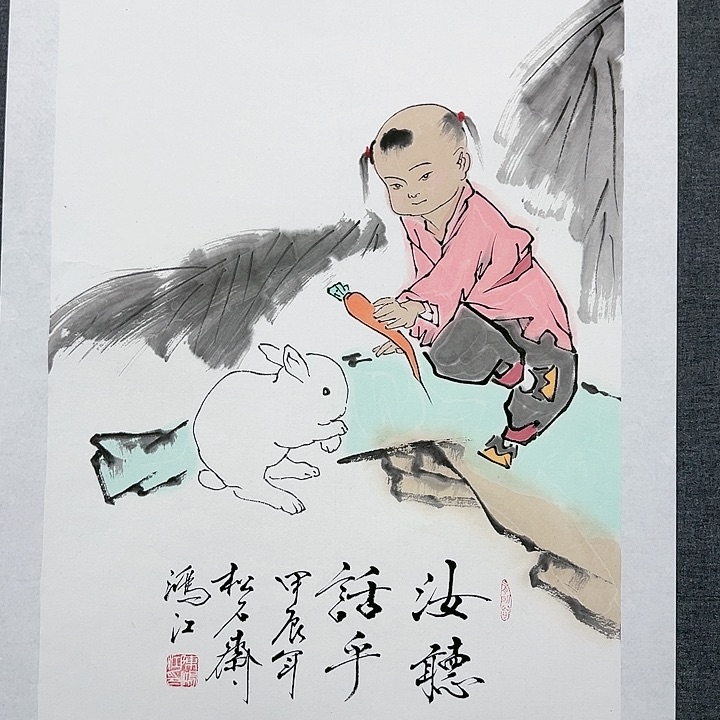 汝聽
話乎
甲辰年
松石齋
鴻江